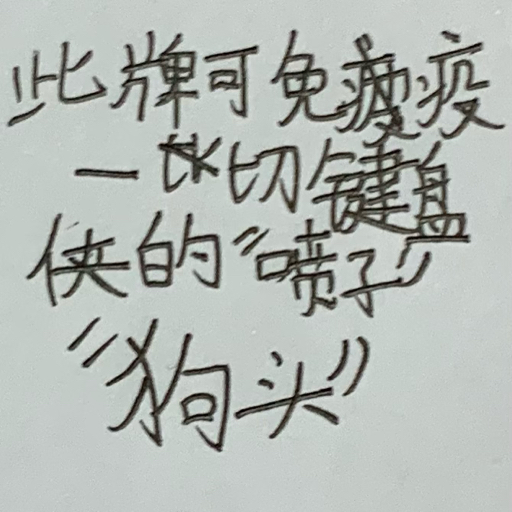 此牌可免疫
一切键盘
侠的"喷子"
"狗头"